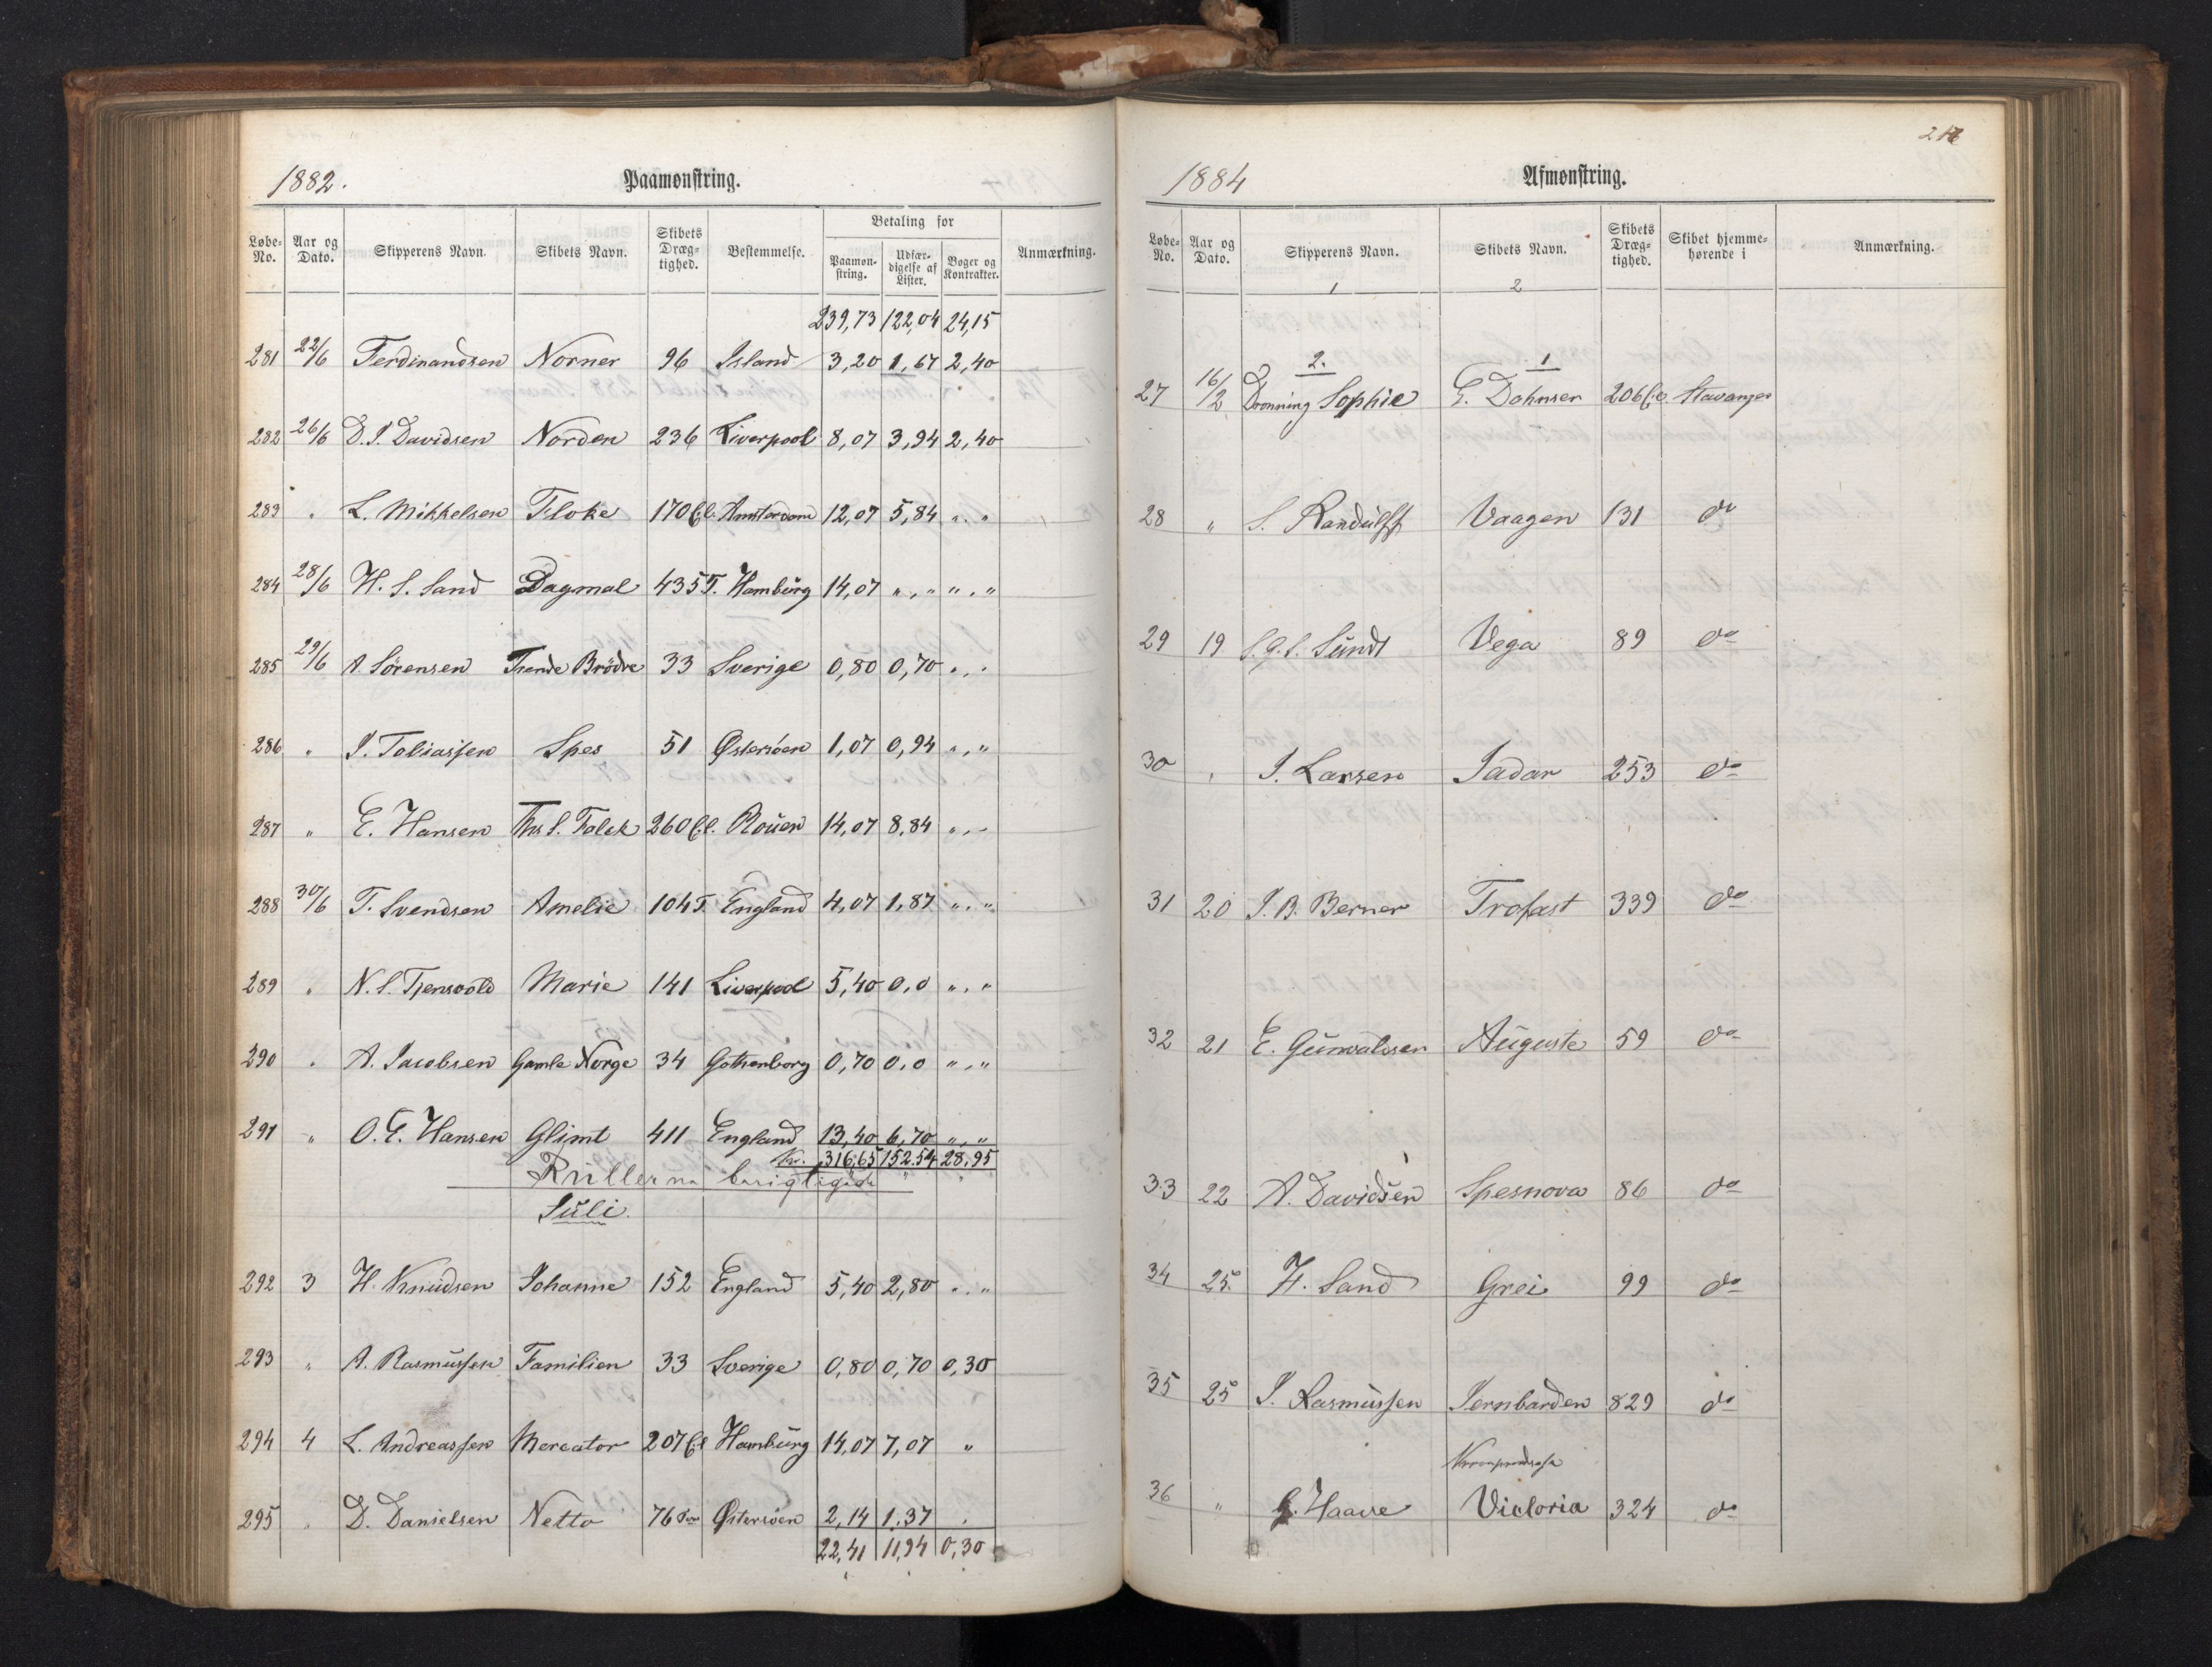 1882. Paamønstring.
Løbe-No. Aar og Dato. Skipperens Navn. Skibets Navn. Skibets Dræg-tighed. Bestemmelse. Betaling for Paamøn-string. Udfær-digelse af Lister. Bøger og Kontrakter. Anmærkning.
239,73 122,04 24,15
281 22/6 Ferdinandsen Norner 96 Island 3,20 1,67 2,40
282 26/6 D. I. Davidsen Norden 236 Liverpool 8,07 3,94 2,40
283 " L. Mikkelsen Floke 170 Cl. Amsterdam 12,07 5,84 " "
284 28/6 H. S. Sand Dagmal 435 T. Hamburg 14,07 " " " "
285 29/6 A. Sørensen Trende Brödre 33 Sverige 0,80 0,70 " "
286 " I. Tobiassen Spes 51 Østersøen 1,07 0,94 " "
287 " E. Hansen Ths S. Falck 260 Cl. Rouen 14,07 8,84 " "
288 30/6 T. Svendsen Amelie 104 T. England 4,07 1,87 " "
289 " N. S. Tjensvold Marie 141 Liverpool 5,40 0,0 " "
290 " A. Jacobsen Gamle Norge 34 Gothenborg 0,70 0,0 " "
291 " O. E. Hansen Glimt 411 England 13,40 6,70 " "
Kr. 316,65 152.54 28,95
Rullerna
Juli.
292 3 H. Knudsen Johanne 152 England 5,40 2,80 " "
293 " A. Rasmussen Familien 33 Sverige 0,80 0,70 0,30
294 4 L. Andreassen Mercator 207 Cl Hamburg 14,07 7,07 "
295 " D. Danielsen Netto 76 Østersøen 2,14 1,37
22,41 11,94 0,30
1884 Afmønstring.
Løbe-No. Aar og Dato. Skipperens Navn. Skibets Navn. Skibets Dræg-tighed. Skibet hjemme-hørende i Anmærkning.
1 2
2. 1
27 16/2 Dronning Sophie E. Dahnsen 206 Stavanger
28 " S. Randulff Vaagen 131 do
29 19 Sundt Vega 89 do
30 " I. Larsen Jadar 253 do
31 20 I. B. Berner Trofast 339 do
32 21 E. Gunvaldsen Auguste 59 do
33 22 A. Davidsen Spesnova 86 do
34 25. H. Sand Grei 99 do
35 25 I. Rasmussen Jernbarden 829 do
36 " G. Haave Victoria 324 do